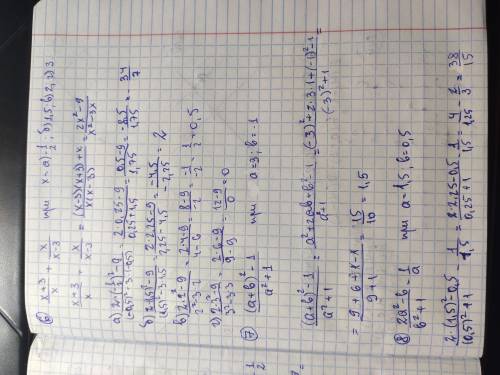 ⑥ x+3/x + x/x-3 при x = а) -1/2; б) 1,5; в) 2; г) 3
x+3/x + x/x-3 = (x-3)(x+3)+x/x(x-3) = 2x²-9/x²-3x
а) 2·(-1/2)²-9/(-0,5)²-3·(-0,5) = 2·0,25-9/0,25+1,5 = 0,5-9/1,75 = -8,5/1,75 = -34/7
б) 2·1,5²-9/1,5²-3·1,5 = 2·2,25-9/2,25-4,5 = -4,5/-2,25 = 2
в) 2·2²-9/2²-3·2 = 2·4-9/4-6 = 8-9/-2 = -1/-2 = 1/2 = 0,5
г) 2·3-9/3²-3·3 = 2·6-9/9-9 = 12-9/0 = 0
⑦ (a+b)²-1/a²+1 при a=3; b=-1
(a+b)²-1/a²+1 = a²+2ab+b²-1/a²+1 = (-3)²+2·3·1+(-1)²-1/(-3)²+1 =
= 9+6+1-1/9+1 = 15/10 = 1,5
⑧ 2a²-b/b²+1 - 1/a при a=1,5, b=0,5
2·(1,5)²-0,5/(0,5)²+1 - 1/1,5 = 2·2,25-0,5/0,25+1 - 1/1,5 = 4/1,25 - 2/3 = 38/15
-1/2
7=